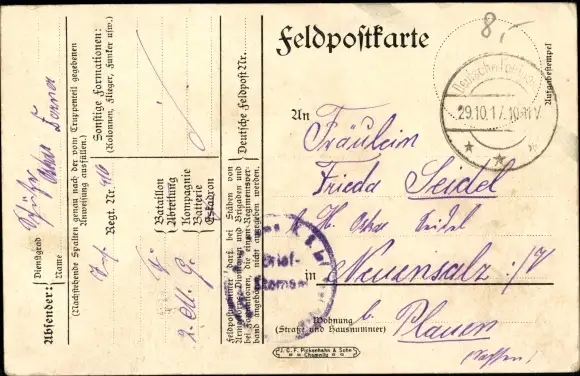 Feldpostkarte
85
Deutsche Feldpost
29.10.17. 10-11 V
Aufgabestempel
An
Fräulein
Frieda Seidel
b. H. Oskar Seidel
in Neuensalz i/V
Wohnung
(Straße und Hausnummer)
b. Plauen
(Sachsen)
J. C. F. Pickenhahn & Sohn
Chemnitz
Brief-
Stempel
Absender:
Dienstgrad
Name
(Nachstehende Spalten genau nach der vom Truppenteil gegebenen
Anweisung ausfüllen.)
Inf. Regt. Nr.
Sonstige Formationen:
(Kolonnen, Flieger, Funker usw.)
Bataillon
Abteilung
2. M. G.
Kompagnie
Batterie
Eskadron
Deutsche Feldpost Nr.
Feldpostnummer darf bei Stäben von
Armeekorps, Divisionen und Brigaden und
bei Formationen, die einem Regimentsver-
band angehören, nicht angegeben werden.